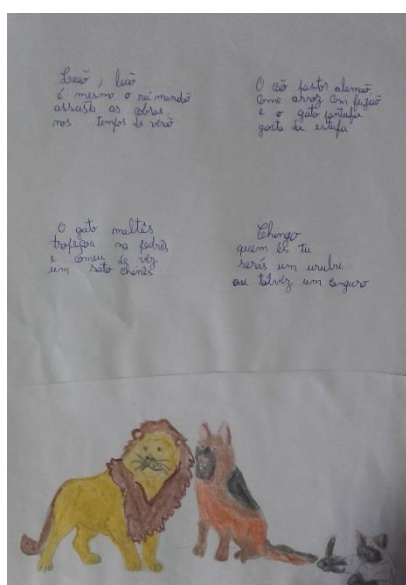 Leão, leão
é mesmo o rei mandão
assusta as cobras
nos tempos de verão
O cão pastor alemão
come arroz com feijão
e o gato
gosta da estufa
O gato maltês
tropeçou na
e comeu de vez
um rato chinês
quem és tu
serás um urubu
ou talvez um canguro